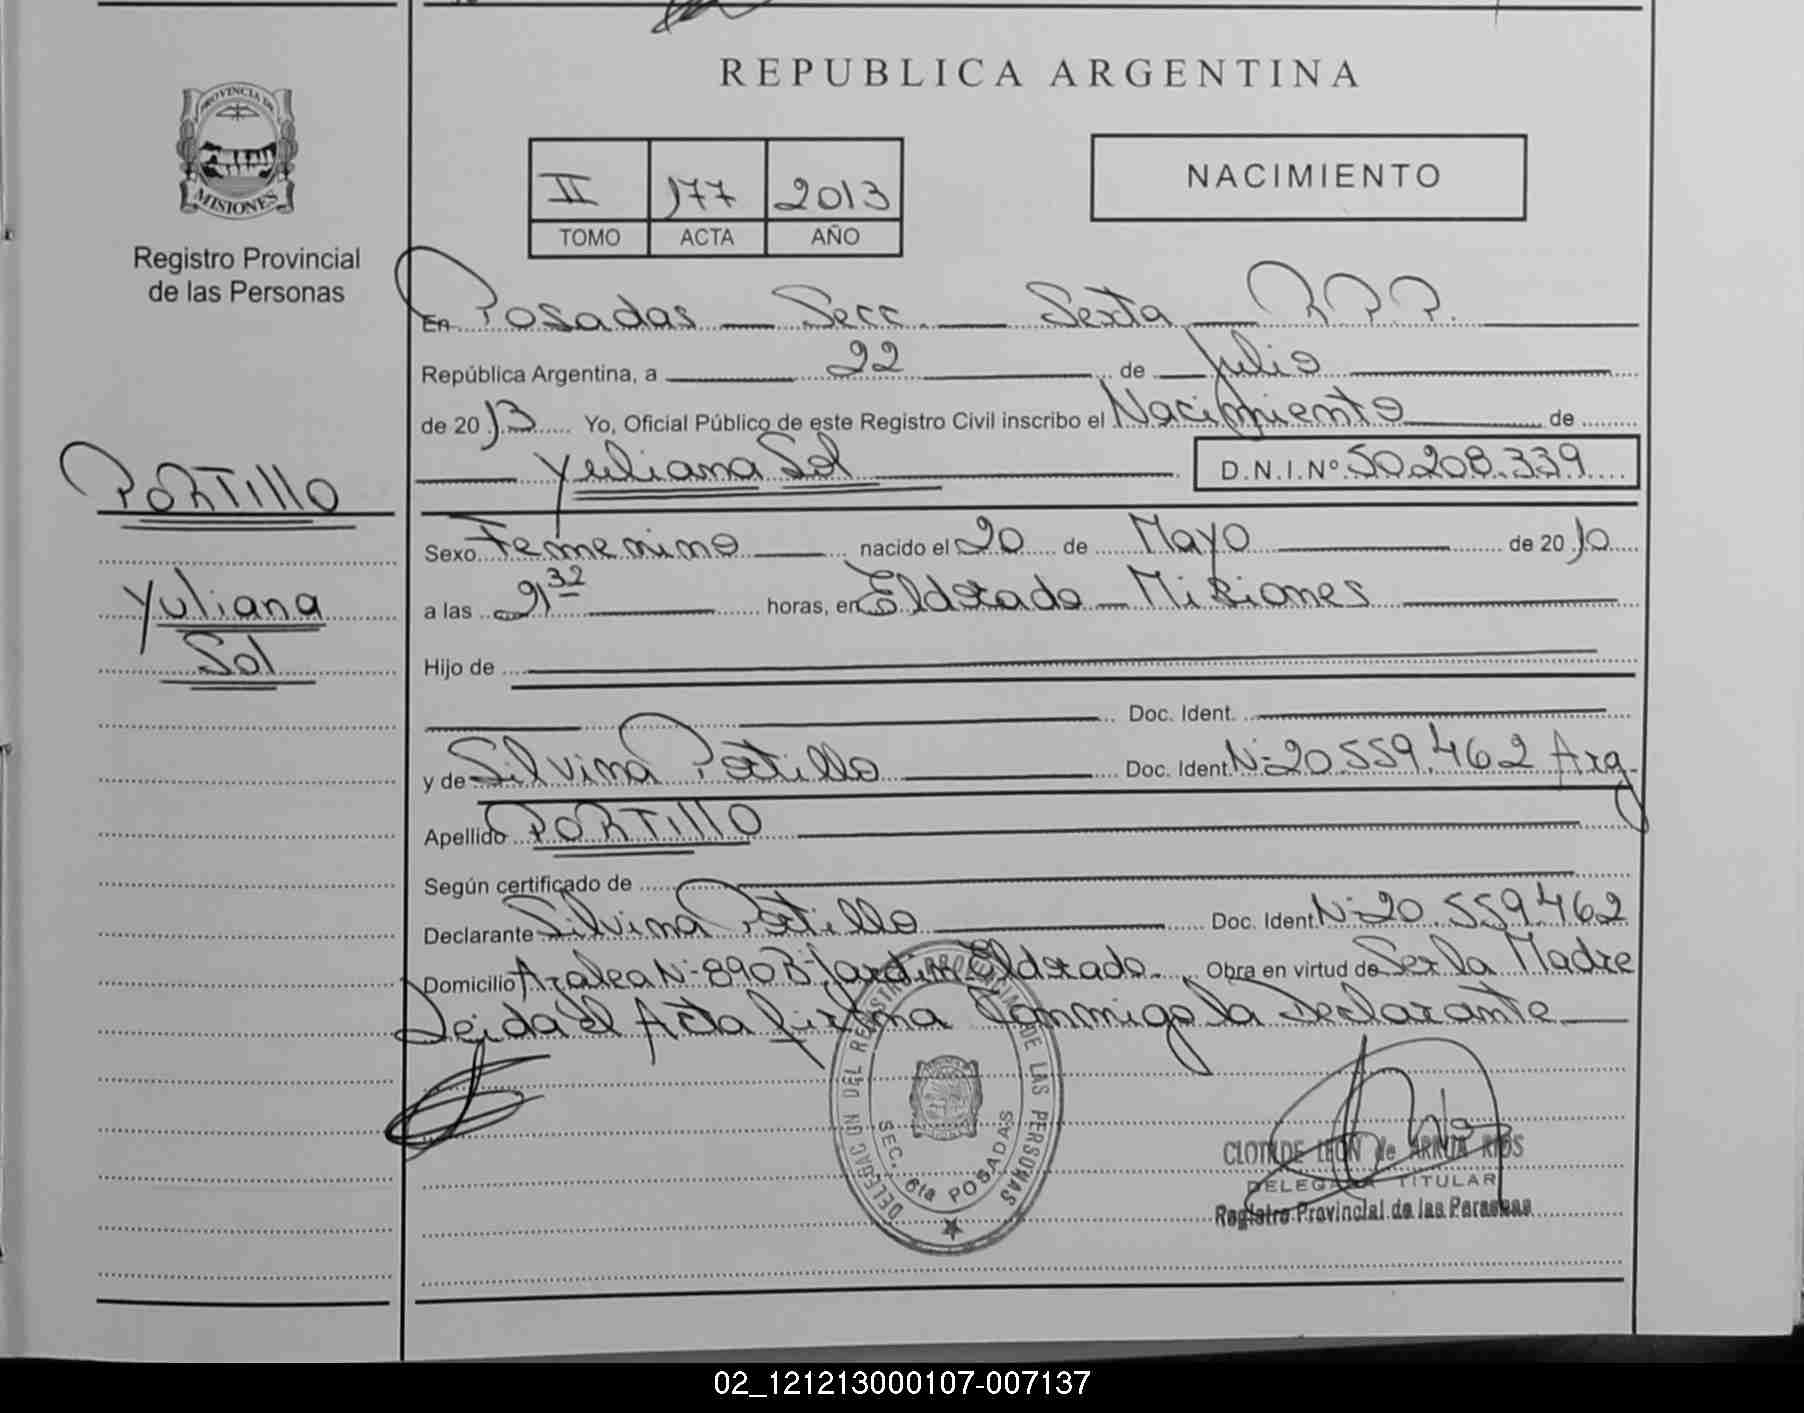 REPUBLICA ARGENTINA
PROVINCIA DE
MISIONES
Registro Provincial
de las Personas
II 177 2013
TOMO ACTA AÑO
NACIMIENTO
En Posadas Secc. Sexta R.P.P.
República Argentina, a 22 de Julio
de 2013 Yo, Oficial Público de este Registro Civil inscribo el Nacimiento de
Yuliana Sol D.N.I.Nº 50.208.339
PORTILLO
Yuliana
Sol
Sexo Femenino nacido el 20 de Mayo de 2010
a las 21 32 horas, en Eldorado Misiones
Hijo de
Doc. Ident.
y de Silvina Portillo Doc. Ident. Nº 20.559.462 Arg.
Apellido PORTILLO
Según certificado de
Declarante Silvina Portillo Doc. Ident. Nº 20.559.462
Domicilio Azalea Nº 890 Bº Jardin Eldorado Obra en virtud de Ser la Madre
Leida el Acta firma Conmigo la Declarante
DELEGACION DEL REGISTRO PROVINCIAL DE LAS PERSONAS
SEC. 6ta POSADAS
CLOTILDE LEON de ARRUA RIOS
DELEGADA TITULAR
Registro Provincial de las Personas
02_121213000107-007137